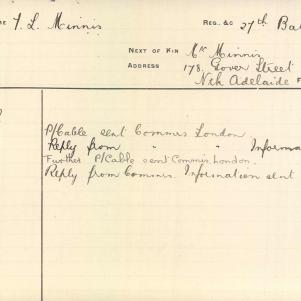 ME T. L. Minnis REG. &C 27th Bat
NEXT OF KIN Mr Minnis
ADDRESS 178. Gover Street
Nth Adelaide F
P/Cable sent Commis London.
Reply from " " Informa
Further P/Cable sent Commis. London.
Reply from Commis. Information sent